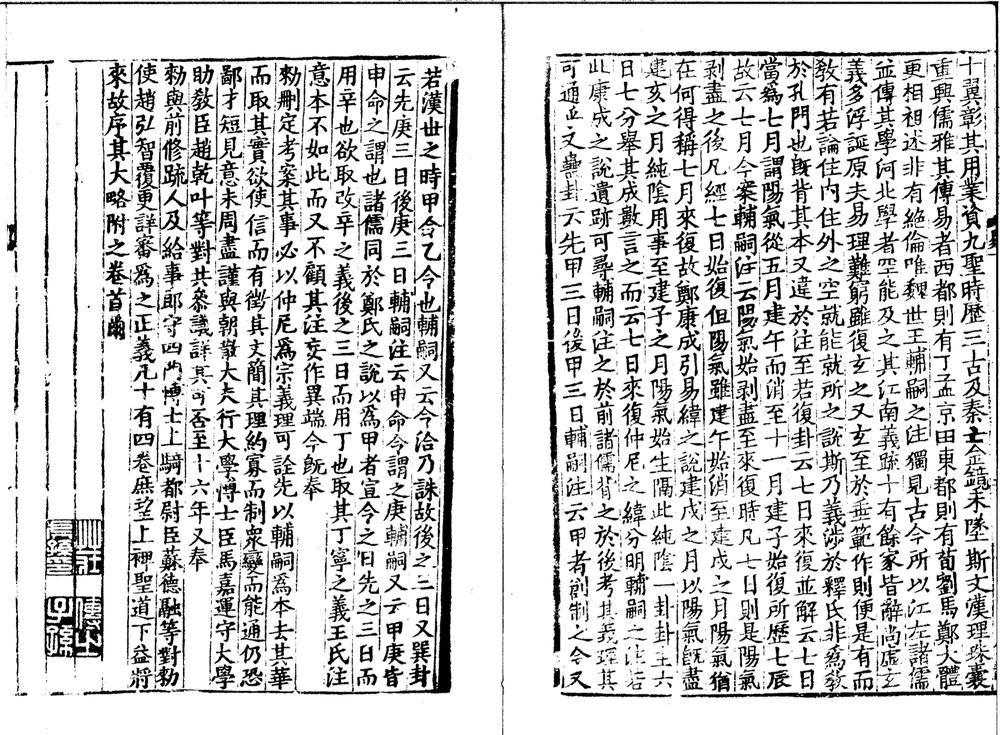 十翼彰其用業資九聖時歷三古及秦亡金鏡未墜斯文漢理珠囊
重興儒雅其傳易者西都則有丁孟京田東都則有荀劉馬鄭大體
更相祖述非有絕倫唯魏世王輔嗣之注獨見古今所以江左諸儒
並傳其學河北學者罕能及之其江南義疏十有餘家皆辭尚虛玄
義多浮誕原夫易理難窮雖復玄之又玄至於垂範作則便是有而
敎有若論住內住外之空就能就所之說斯乃義涉於釋氏非爲敎
於孔門也旣背其本又違於注至若復卦云七日來復並解云七日
當爲七月謂陽氣從五月建午而消至十一月建子始復所歷七辰
故云七月今案輔嗣注云陽氣始剥盡至來復時凡七日則是陽氣
剥盡之後凡經七日始復但陽氣雖建午始消至建戌之月陽氣猶
在何得稱七月來復故鄭康成引易緯之說建戌之月以陽氣旣盡
建亥之月純陰用事至建子之月陽氣始生隔此純陰一卦卦主六
日七分舉其成數言之而云七日來復仲尼之緯分明輔嗣之注若
此康成之說遺跡可尋輔嗣注之於前諸儒背之於後考其義理其
可通乎又蠱卦云先甲三日後甲三日輔嗣注云甲者創制之令又
若漢世之時甲令乙令也輔嗣又云令洽乃誅故後之三日又巽卦
云先庚三日後庚三日輔嗣注云申命令謂之庚輔嗣又云甲庚皆
申命之謂也諸儒同於鄭氏之說以爲甲者宣令之日先之三日而
用辛也欲取改辛之義後之三日而用丁也取其丁寧之義王氏注
意本不如此而又不顧其注妄作異端今旣奉
勑刪定考案其事必以仲尼爲宗義理可詮先以輔嗣爲本去其華
而取其實欲使信而有徵其文簡其理約寡而制衆變而能通仍恐
鄙才短見意未周盡謹與朝散大夫行大學博士臣馬嘉運守大學
助敎臣趙乾叶等對共叅議詳其可否至十六年又奉
勑與前修疏人及給事郎守四門博士上騎都尉臣蘇德融等對勑
使趙弘智覆更詳審爲之正義凡十有四卷庶望上裨聖道下益將
來故序其大略附之卷首爾